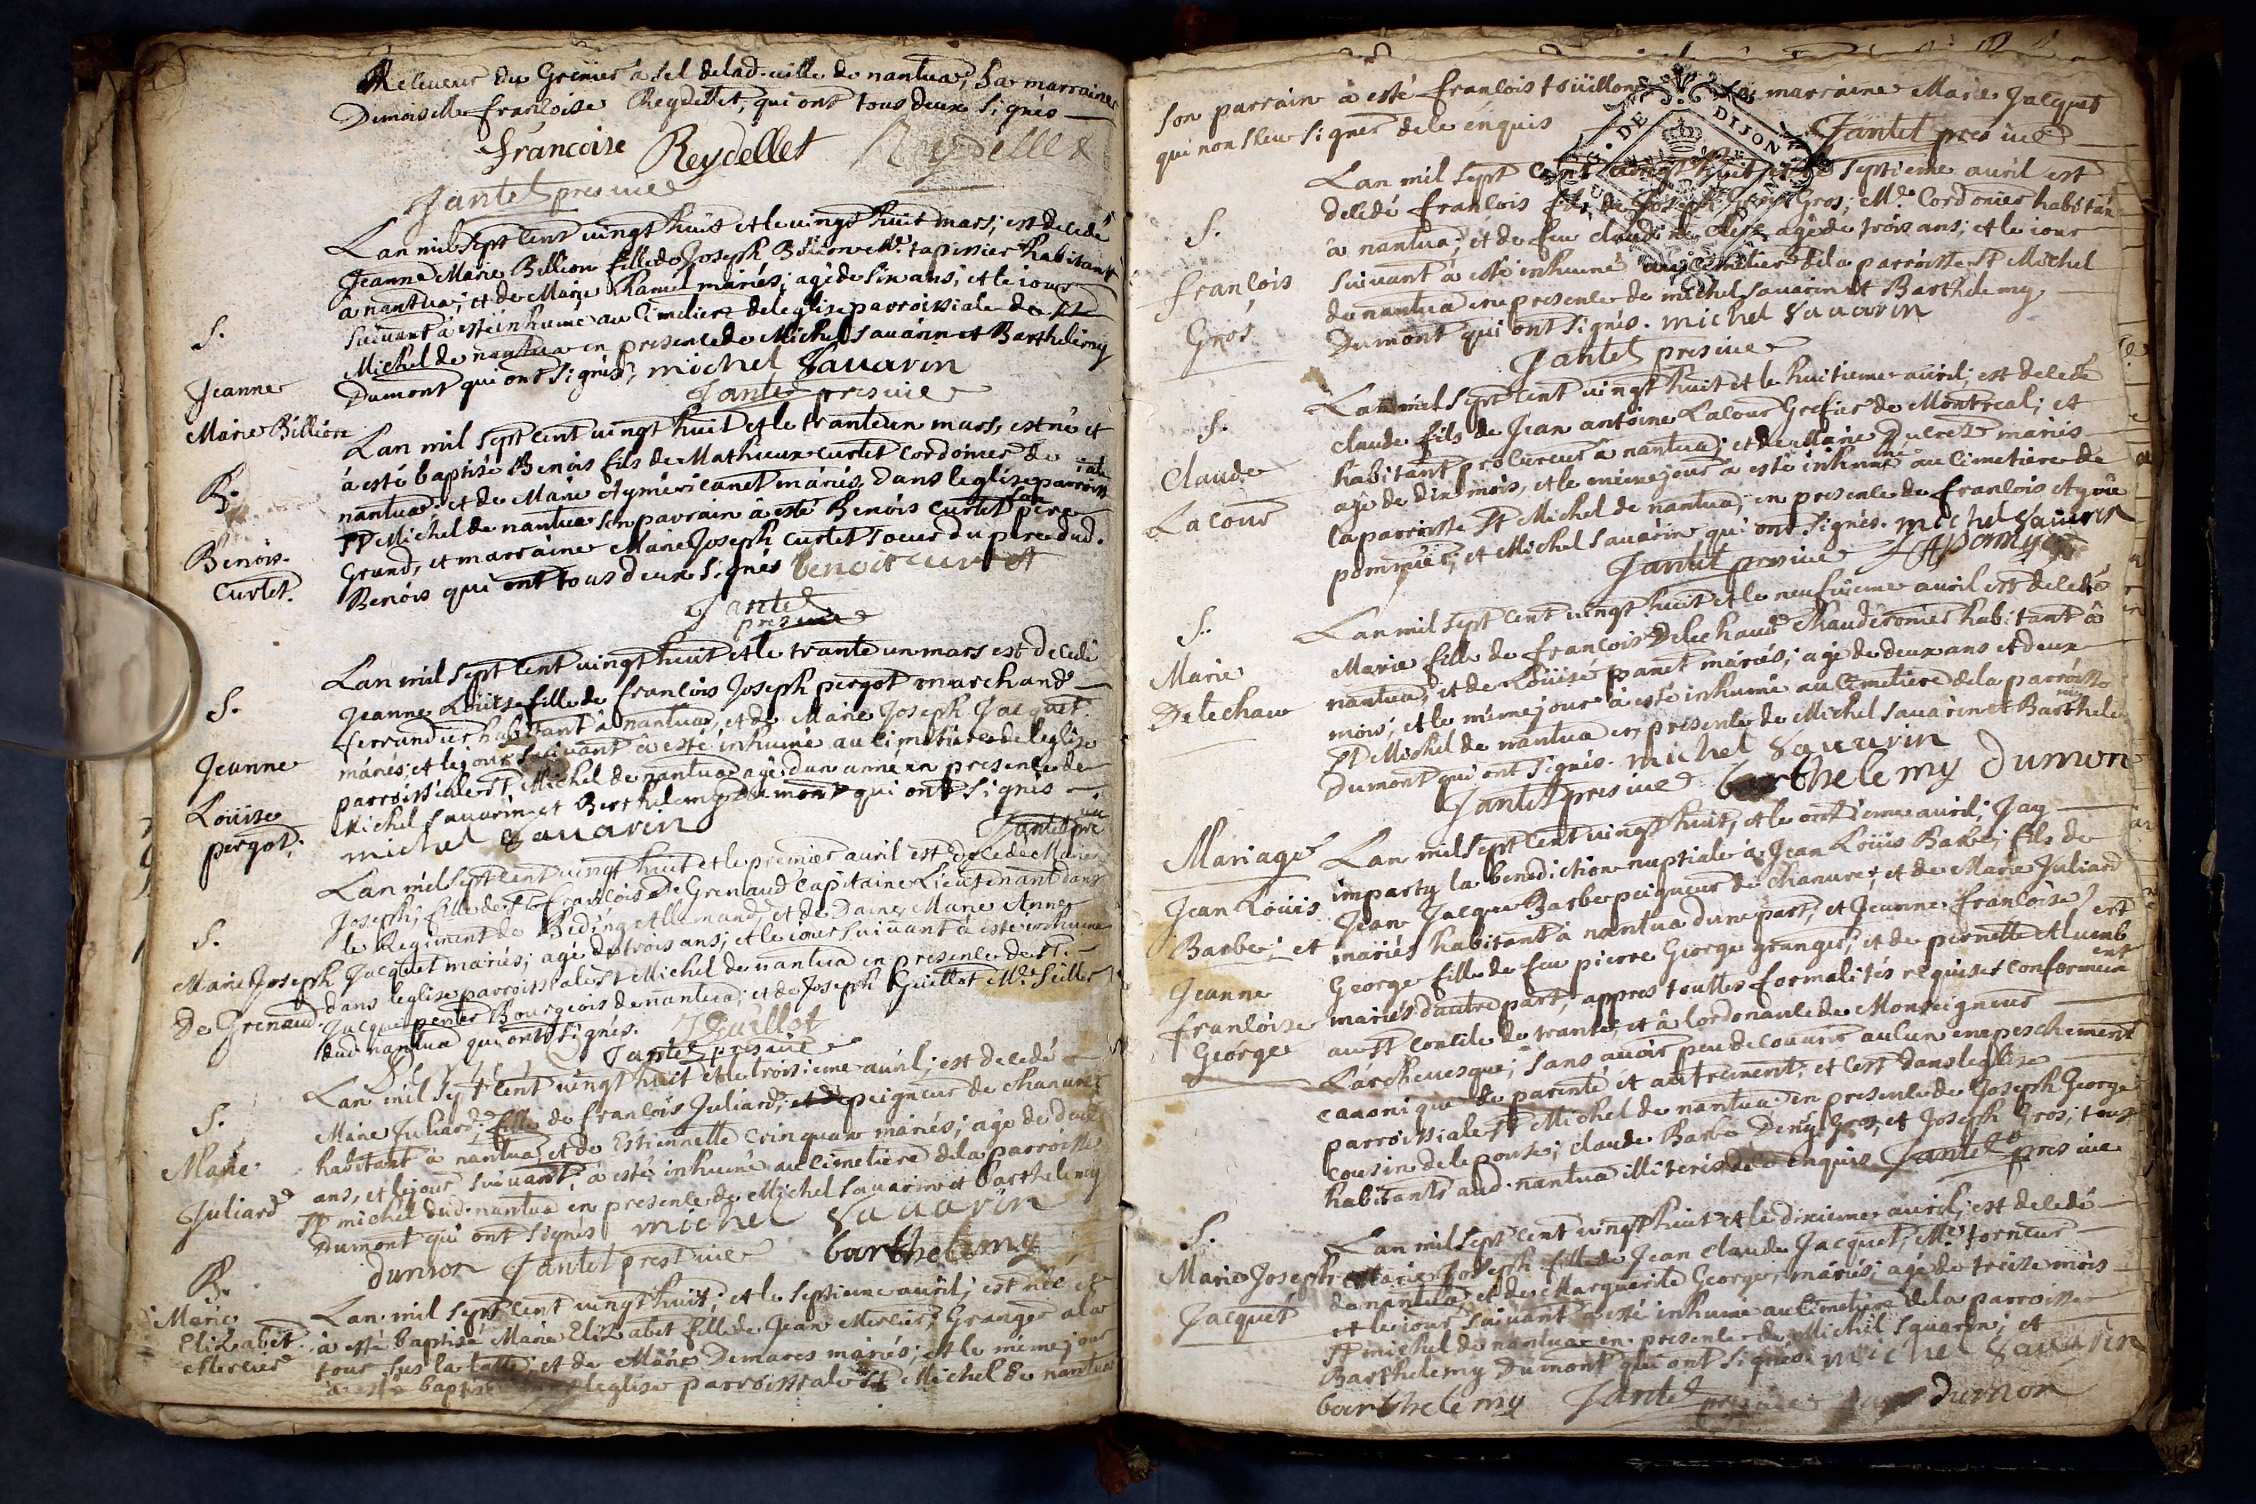 Releveur du Grenier à sel delad. ville de nantua, Sa marraine
Demoiselle françoise Reydellet, qui ont tous deux signés
francoise Reydellet Reydellet
Jantet pres vic
Lan mil sept cent vingt huit et le vingt huit mars, est decedé
Jeanne Marie Billion fille de Joseph Billion Me. tapissier habitant
a nantua, et de Marie Ramel mariés, agé de six ans, et le iour
suivant à esté inhumé au Cimetiere deleglise parroissiale de St
Michel de nantua en presence de Michel Savarin et Barthelemy
Dumont qui ont signés, michel Savarin
Jantet pres vic
S.
Jeanne
Marie Billion
Lan mil sept cent vingt huit et le trante un mars, est né et
à esté baptisé Benois fils de Mathieux curtet cordonier de
nantua, et de Marie Aymé ricanet mariés, dans leglise parroissiale
St Michel de nantua son parrain à esté Benois curtet son pere
Grand, et marraine Marie Joseph curtet soeur du pere dud.
Benois qui ont tous deux signés benoit curtet
Jantet
pres vic
B.
Benois
Curtet.
Lan mil sept cent vingt huit et le trante un mars est decedé
Jeanne Loüise fille de francois Joseph pergot marchand
ferrandier habitant à nantua, et de Marie Joseph Jacquet
mariés, et le jour suivant à esté inhumé au cimetiere de leglise
parroissiale St Michel de nantua agé dun anne en presence de
Michel Savarin et Berthelemy Dumont qui ont signés
michel Savarin Jantet pre vic
S.
Jeanne
Loüise
pergot.
Lan mil sept cent vingt huit et le premier avril est decedé Marie
Joseph, fille de Sr françois De Grenaud Capitaine Lieutenant dans
le Regiment de Beding Allemand, et de Dame Marie Anne
Jacquet mariés, agé de trois ans, et le iour suivant à esté inhumé
dans leglise parroissiale St Michel de nantua en presence de Sr.
Jacque perier Bourgeois de nantua, et de Joseph Guillot Me. Sellier
dud nantua qui ont signés. J Guillot
Jantet pres vic
S.
Marie Joseph
De Grenaud
Lan mil sept cent vingt huit et le troisieme avril, est decedé
Marie Juliard, fille de francois Juliard, peigneur de chanvre
habitant à nantua, et de Estiennette Cinquan mariés, agé de deux
ans, et le jour suivant à esté inhumé au cimetiere dela parroisse
St michel dud. nantua en presence de Michel Savarin et barthelemy
Dumont qui ont signés michel Savarin
dumon Jantet prest vic barthelemy
S.
Marie
Juliard
Lan mil sept cent vingt huit, et le septieme avril, est née et
à esté baptisé Marie Elizabet fille de Jean Mercier Granger a la
tour, et de Marie Demares mariés, et le même jour
à esté baptisé leglise parroissiale St Michel de nantua
B.
Marie
Elizabet
Mercier
Son parrain à esté françois toüillon, marraine Marie Jacquet
qui non sceu signer de ce énquis Jantet pres vic
Lan mil sept cent vingt huit et le septieme avril est
decedé françois fils de Joseph Gros, Me. Cordonier habitan
à nantua, et de feu claudine agé de trois ans, et le iour
suivant à esté inhumé au cimetier dela parroisse St Michel
de nantua en presence de michel Savarin et Barthelemy
Dumont qui ont signés. michel Savarin
Jantet pres vic
S.
françois
Gros
Lan mil sept cent vingt huit et le huitieme avril, est decedé
claude fils de Jean antoine Lacour Grefier de Montreal, et
habitant procureur à nantua, et de Marie Ducret mariés
agé de dix mois, et le même jour à esté inhumé au cimetiere de
la parroisse St Michel de nantua, en presence de francois Ayme
pommier, et Michel Savarin qui ont signés. michel Savarin
Jantet pres vic
S.
Claude
Lacour
Lan mil sept cent vingt huit et le neufvieme avril est decedé
Marie fille de françois Delechaud Chauderonier habitant à
nantua, et de Loüise panet mariés, agé de deux ans et deux
mois, et le même jour à esté inhumé au cimetiere dela parroisse
St Michel de nantua en presence de Michel Savarin et Barthelemy
Dumont qui ont signés. michel Savarin
Jantet pres vic barthelemy dumon
S.
Marie
Delechau
Lan mil sept cent vingt huit, et le onzieme avril, Jay
imparty la benediction nuptiale à Jean Loüis Barbe, fils de
Jean Jacque Barbe peigneur de chanvre, et de Marie Juliard
mariés habitant à nantua dune part, et Jeanne francoise
George fille de feu pierre George granger, et de pernette Aluimb est
mariés dautre part, appres touttes formalités requises conformement
au St Concile de trante, et à lordonance de Monseigneur
Larchevesque, sans avoir peu decouvrir aucun enpeschement
canonique de parenté et autrement, et cest dans leglise
parroissiale St Michel de nantua en presence de Joseph George
cousin de lepouse, claude Barbe Deny Gros, et Joseph Gros, tous
habitants aud. nantua illiterés de ce enquis Jantet pres vic
Mariage
Jean Loüis
Barbe, et
Jeanne
francoise
George
Lan mil sept cent vingt huit et le dixieme avril, est decedé
Marie Joseph fille de Jean claude Jacquet, Me. torneur
de nantua, et de Marguerite George, mariés, agé de treize mois
et le iour suivant à esté inhumé au cimetiere dela parroisse
St michel de nantua en presence de Michel Savarin, et
Barthelemy Dumont qui ont signés. michel Savarin
barthelemy Jantet pres vic dumon
S.
Marie Joseph
Jacquet